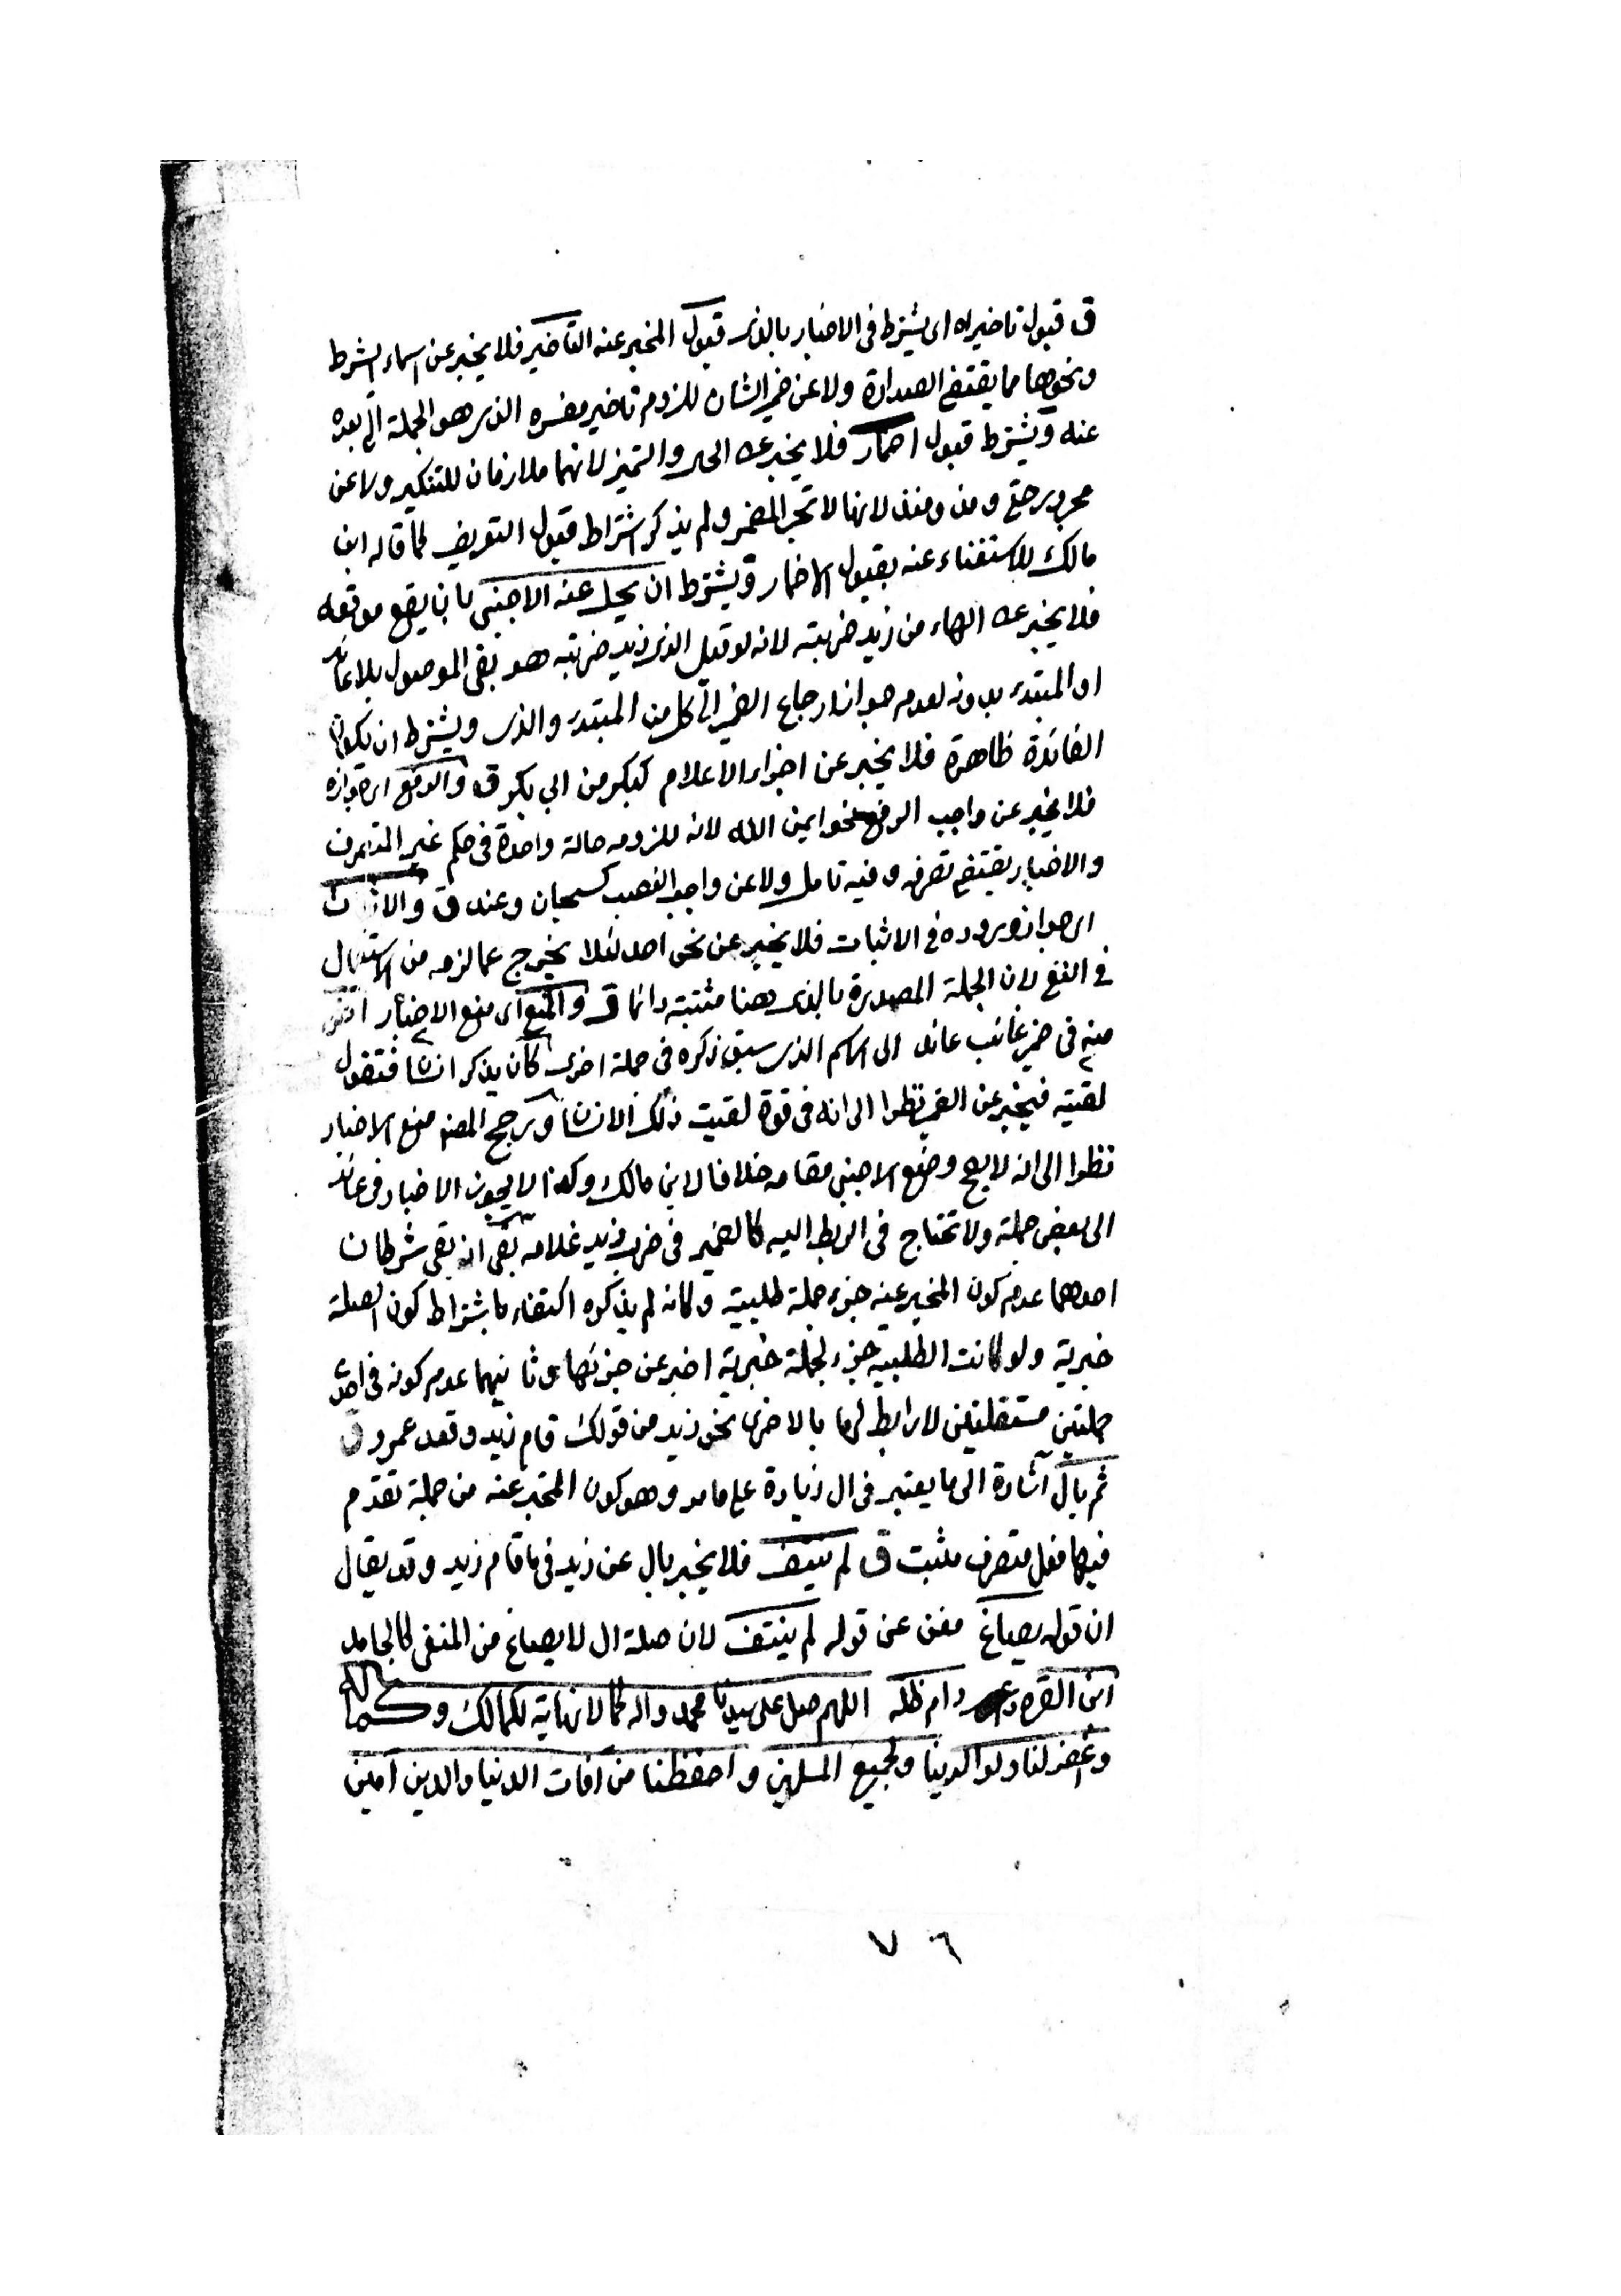 ق قبول تاخيراه اى يشترط فى الاخبار بالذى قبول المخبر عنه التأخير فلا يخبر عن اسماء الشرط
ونحوها مما يقتضى الصدارة ولا عن ضمير الشان للزوم تاخير مفسره الذى هو الجملة التى بعده
عنه ويشترط قبول اضمار فلا يخبر عن الحال والتميز لانهما ملازمان للتنكير ولا عن
مجرور حتى ومذ ومنذ لانها لا تجر المضمر ولم يذكر اشتراط قبول التعريف كما قاله ابن
مالك للاستغناء عنه بقبول الاضمار ويشترط ان يحل عنه الاجنبى بان يقع موقعه
فلا يخبر عن الهاء من زيد ضربته لانه لو قيل الذى زيد ضربته هو بقى الموصول بلا عائد
او المبتدء بدونه لعدم جواز ارجاع الضمير الى كل من المبتدء والذى ويشترط ان يكون
الفائدة ظاهرة فلا يخبر عن اجزاء الاعلام كبكر من ابى بكر ق والرفع اى جوازه
فلا يخبر عن واجب الرفع نحو ايمن الله لانه للزومه حالة واحدة فى حكم غير المتصرف
والاخبار يقتضى تصرفه وفيه تامل ولا عن واجب النصب كسبحان وعند ق والاثبات
اى جواز وروده فى الاثبات فلا يخبر عن نحو احد لئلا يخرج عما لزمه من الاستعمال
فى النفى لان الجملة المصدرة بالذى هنا مثبتة دائما ق والمنع اى منع الاخبار انتفى
منه فى ضمير غائب عائد الى الاسم الذى سبق ذكره فى جملة اخرى كأن يذكر انسان فتقول
لقيته فيخبر عن الضمير نظرا الى انه فى قوة لقيت ذلك الانسان ورجح المصنف منع الاخبار
نظرا الى انه لا يصح وضع الاجنبى مقامه خلافا لابن مالك وكذا لا يجوز الاخبار فى عائد
الى بعض جملة ولا تحتاج فى الربط اليه كالضمير فى ضرب زيد غلامه بقى انه بقى شرطان
احدهما عدم كون المخبر عنه جزء جملة طلبية وكانه لم يذكره اكتفاء باشتراط كون الصلة
خبرية ولو كانت الطلبية جزء لجملة خبرية اخبر عن جزئها وثانيهما عدم كونه فى احدى
جملتين مستقلتين لا رابط لهما بالاخرى نحو زيد من قولك قام زيد وقعد عمرو ق
ثم بال اشارة الى ما يعتبر فى ال زيادة على ما مر وهو كون المخبر عنه من جملة تقدم
فيها فعل متصرف مثبت ق لم ينتف فلا يخبر بال عن زيد فى ما قام زيد وقد يقال
ان قوله يصاغ مغن عن قوله لم ينتف لان صلة ال لا يصاغ من المنفى كالجامد
ابن القره داغى دام ظله اللهم صل على سيدنا محمد واله كما لا نهاية لكمالك وكماله
واغفر لنا ولوالدينا ولجميع المسلمين واحفظنا من آفات الدنيا والدين آمين
٧٦